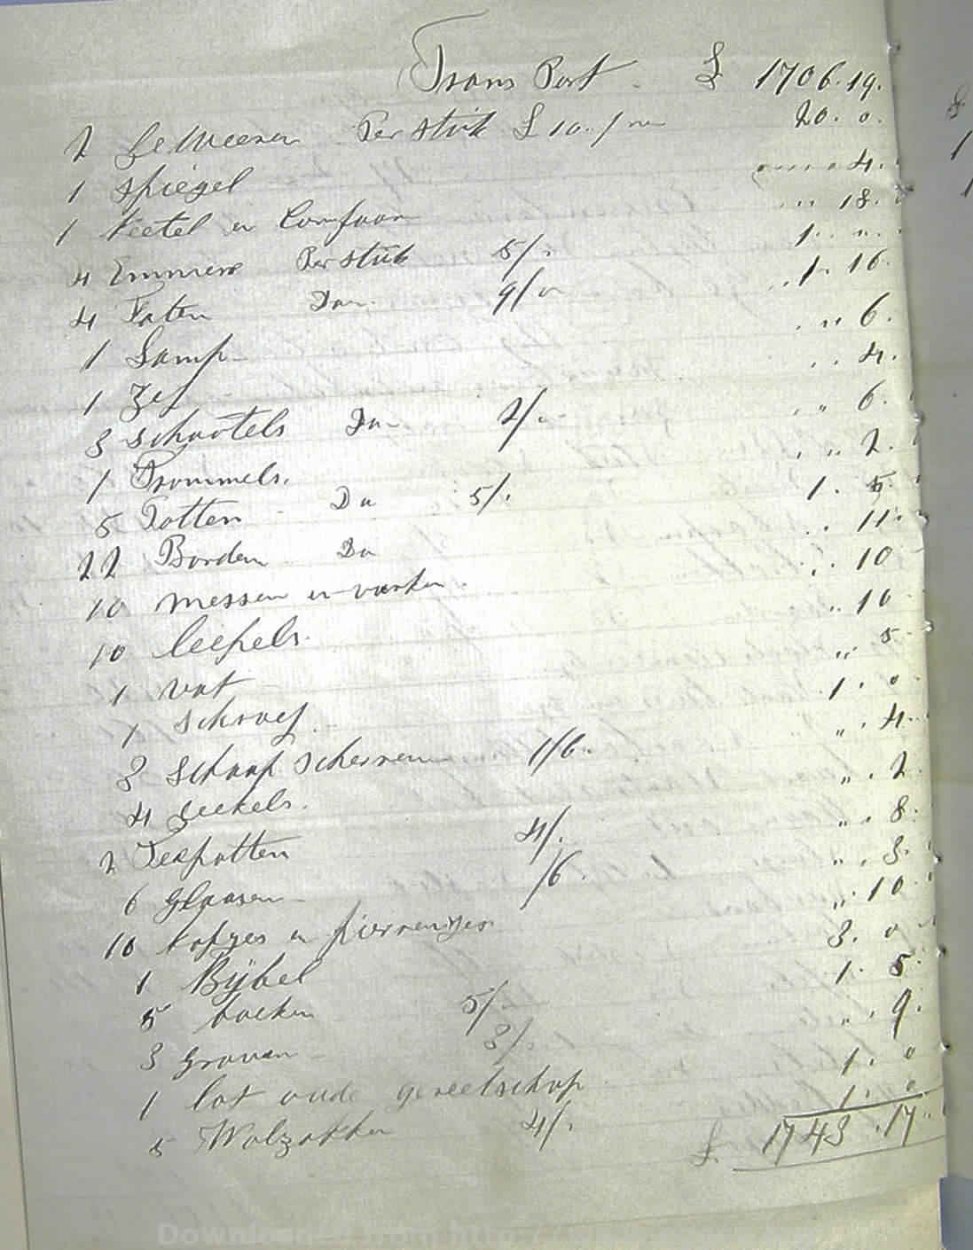 Trans Port. £ 1706.19.
2 geweeren Per stuk £ 10./ 20. 0.
1 Spiegel 4.
1 Keetel en Comfoor " 18.
4 Emmers Per stuk 5/. 1. " "
4 Vaten Do. 9/" 1. 16.
1 Lamp " 6.
1 Zeef " 4.
3 Schootels Do 2/. " 6.
1 Trommels. " 2.
5 Potten Do 5/. 1. 5.
22 Borden Do 11.
10 Messen en vorken. 10
10 leepels. " 10
1 vat " 5
1 Schroef. 1. 0
3 Schaap Scherren 1/6. " 4.
4 Seekels. " 2.
2 Teepotten 4/. " 8.
6 Glaasen /6 " 3.
10 Kopjes en pierrentjes " 10.
1 Bijbel 3. 0
5 boeken 5/. 1. 5.
3 Graven 3/. " 9.
1 lot oude gereetschap 1. 0
5 Wolzakken 4/. 1. 0
£ 1743.17"